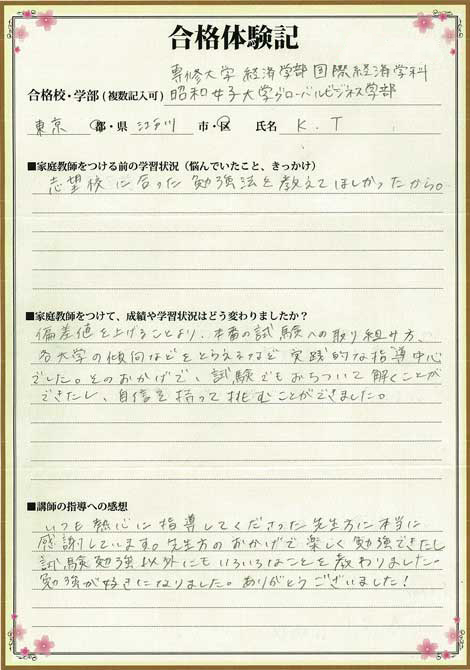 合格体験記
専修大学 経済学部 国際経済学科
合格校・学部(複数記入可) 昭和女子大学グローバルビジネス学部
東京 都・県 江戸川 市・区 氏名 K.T
■家庭教師をつける前の学習状況(悩んでいたこと、きっかけ)
志望校に合った勉強法を教えてほしかったから。
■家庭教師をつけて、成績や学習状況はどう変わりましたか?
偏差値を上げることより、本番の試験への取り組み方、
各大学の傾向などをとらえるなど 実践的な指導中心
でした。そのおかげで、試験でもおちついて解くことが
できたし、自信を持って挑むことができました。
■講師の指導への感想
いつも熱心に指導してくださった先生方に本当に
感謝しています。先生方のおかげで楽しく勉強できたし
試験勉強以外にもいろいろなことを教わりました。
勉強が好きになりました。ありがとうございました!